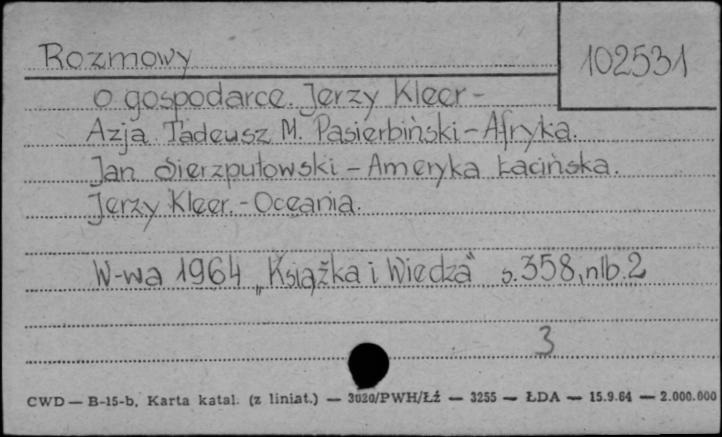 Rozmowy
102531
o gospodarce. Jerzy Kleer -
Azja Tadeusz M. Pasierbiński - Afryka.
Jan Sierzputowski - Ameryka Łacińska.
Jerzy Kleer. - Oceania.
W-wa 1964 „Książka i Wiedza" s. 358, nlb. 2
3
CWD — B-15-b, Karta katal. (z liniat.) — 3020/PWH/Łź — 3255 — ŁDA — 15.9.64 — 2.000.000